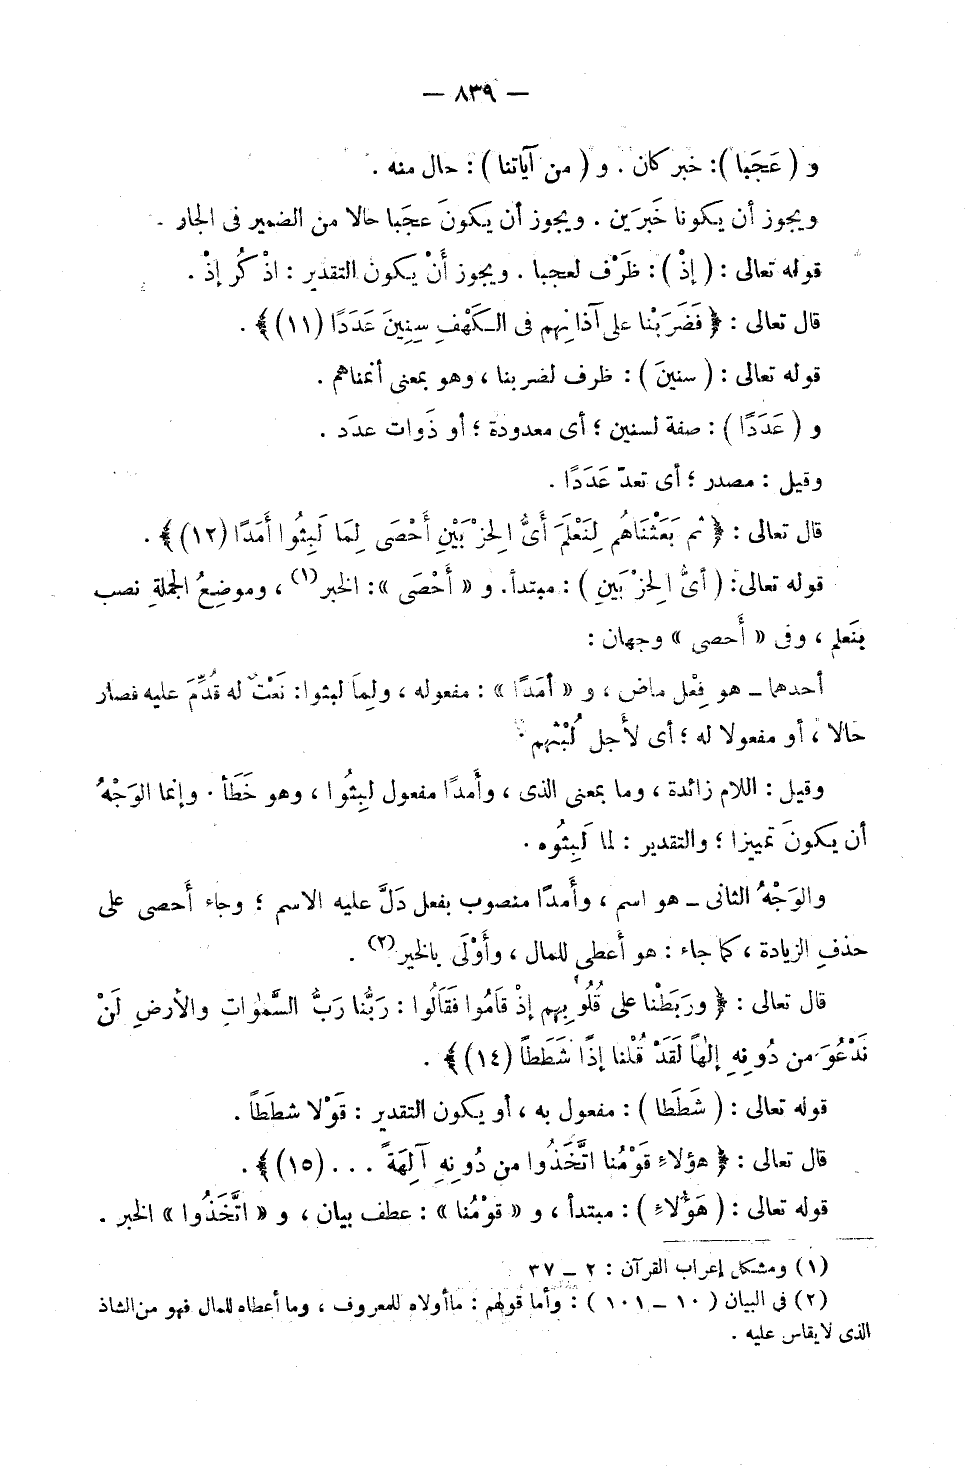 — ٨٣٩ —
و ( عَجَبا ): خبر كان . و ( من آياتنا ) : حال منه .
ويجوز أن يكونا خَبرَين . ويجوز أن يكونَ عجَبا حالا من الضمير فى الجار .
قوله تعالى : ( إذْ ) : ظَرْف لعجبا . ويجوز أَنْ يكون التقدير : اذْ كُر إذْ .
قال تعالى : ﴿ فَضَرَبْنا على آذانِهم فى الكَهْفِ سِنِينَ عَدَدًا (١١) ﴾ .
قوله تعالى : ( سنينَ ) : ظرف لضربنا ، وهو بمعنى أنمناهم .
و ( عَدَدًا ) : صفة لسنين ؛ أى معدودة ؛ أو ذَوات عدَد .
وقيل : مصدر ؛ أى تعدّ عَدَدًا .
قال تعالى : ﴿ ثم بَعَثْنَاهُم لِنَعْلَمَ أَىُّ الِحزْبَيْنِ أَحْصَى لِمَا لَبِثُوا أَمَدًا (١٢) ﴾ .
قوله تعالى: ( أىُّ الِحزْبَينِ ) : مبتدأ. و « أَحْصَى »: الخبر(١) ، وموضِعُ الجملةِ نصب
بنَعلم ، وفى « أَحصى » وجهان :
أحدهما ــ هو فِعْل ماض ، و « أمَدًا » : مفعوله ، ولِمَا لبثوا: نَعْت له قُدِّمَ عليه فصار
حالا ، أو مفعولا له ؛ أى لأَجل لُبْثهم .
وقيل : اللام زائدة ، وما بمعنى الذى ، وأَمدًا مفعول لبِثُوا ، وهو خَطَأ . وإنما الوَجْهُ
أن يكونَ تمييزا ؛ والتقدير : لما لَبِثُوه .
والوَجْهُ الثانى ــ هو اسم ، وأَمدًا منصوب بفعل دَلَّ عليه الاسم ؛ وجاء أَحصى على
حذفِ الزيادة ، كما جاء : هو أَعطى للمال ، وأَوْلَى بالخير(٢) .
قال تعالى : ﴿ ورَبَطْنا على قُلُوبِهم إذْ قَامُوا فَقَالُوا : رَبُّنا رَبُّ السَّمٰواتِ والأرضِ لَنْ
نَدْعُوَ من دُونِهِ إلٰهاً لَقَدْ قُلْنا إذًا شَطَطاً (١٤) ﴾ .
قوله تعالى : ( شَطَطا ) : مفعول به ، أو يكون التقدير : قَوْلا شططاً .
قال تعالى : ﴿ هؤلاءِ قَوْمُنا اتَّخَذُوا من دُونِهِ آلِهَةً . . . (١٥) ﴾ .
قوله تعالى : ( هَؤُلَاءِ ) : مبتدأ ، و « قوْمُنا » : عطف بيان ، و « اتَّخَذُوا » الخبر .
(١) ومشكل إعراب القرآن : ٢ ــ ٣٧
(٢) فى البيان ( ١٠ ــ ١٠١ ) : وأما قولهم : ما أولاه للمعروف ، وما أعطاه للمال فهو من الشاذ
الذى لا يقاس عليه .